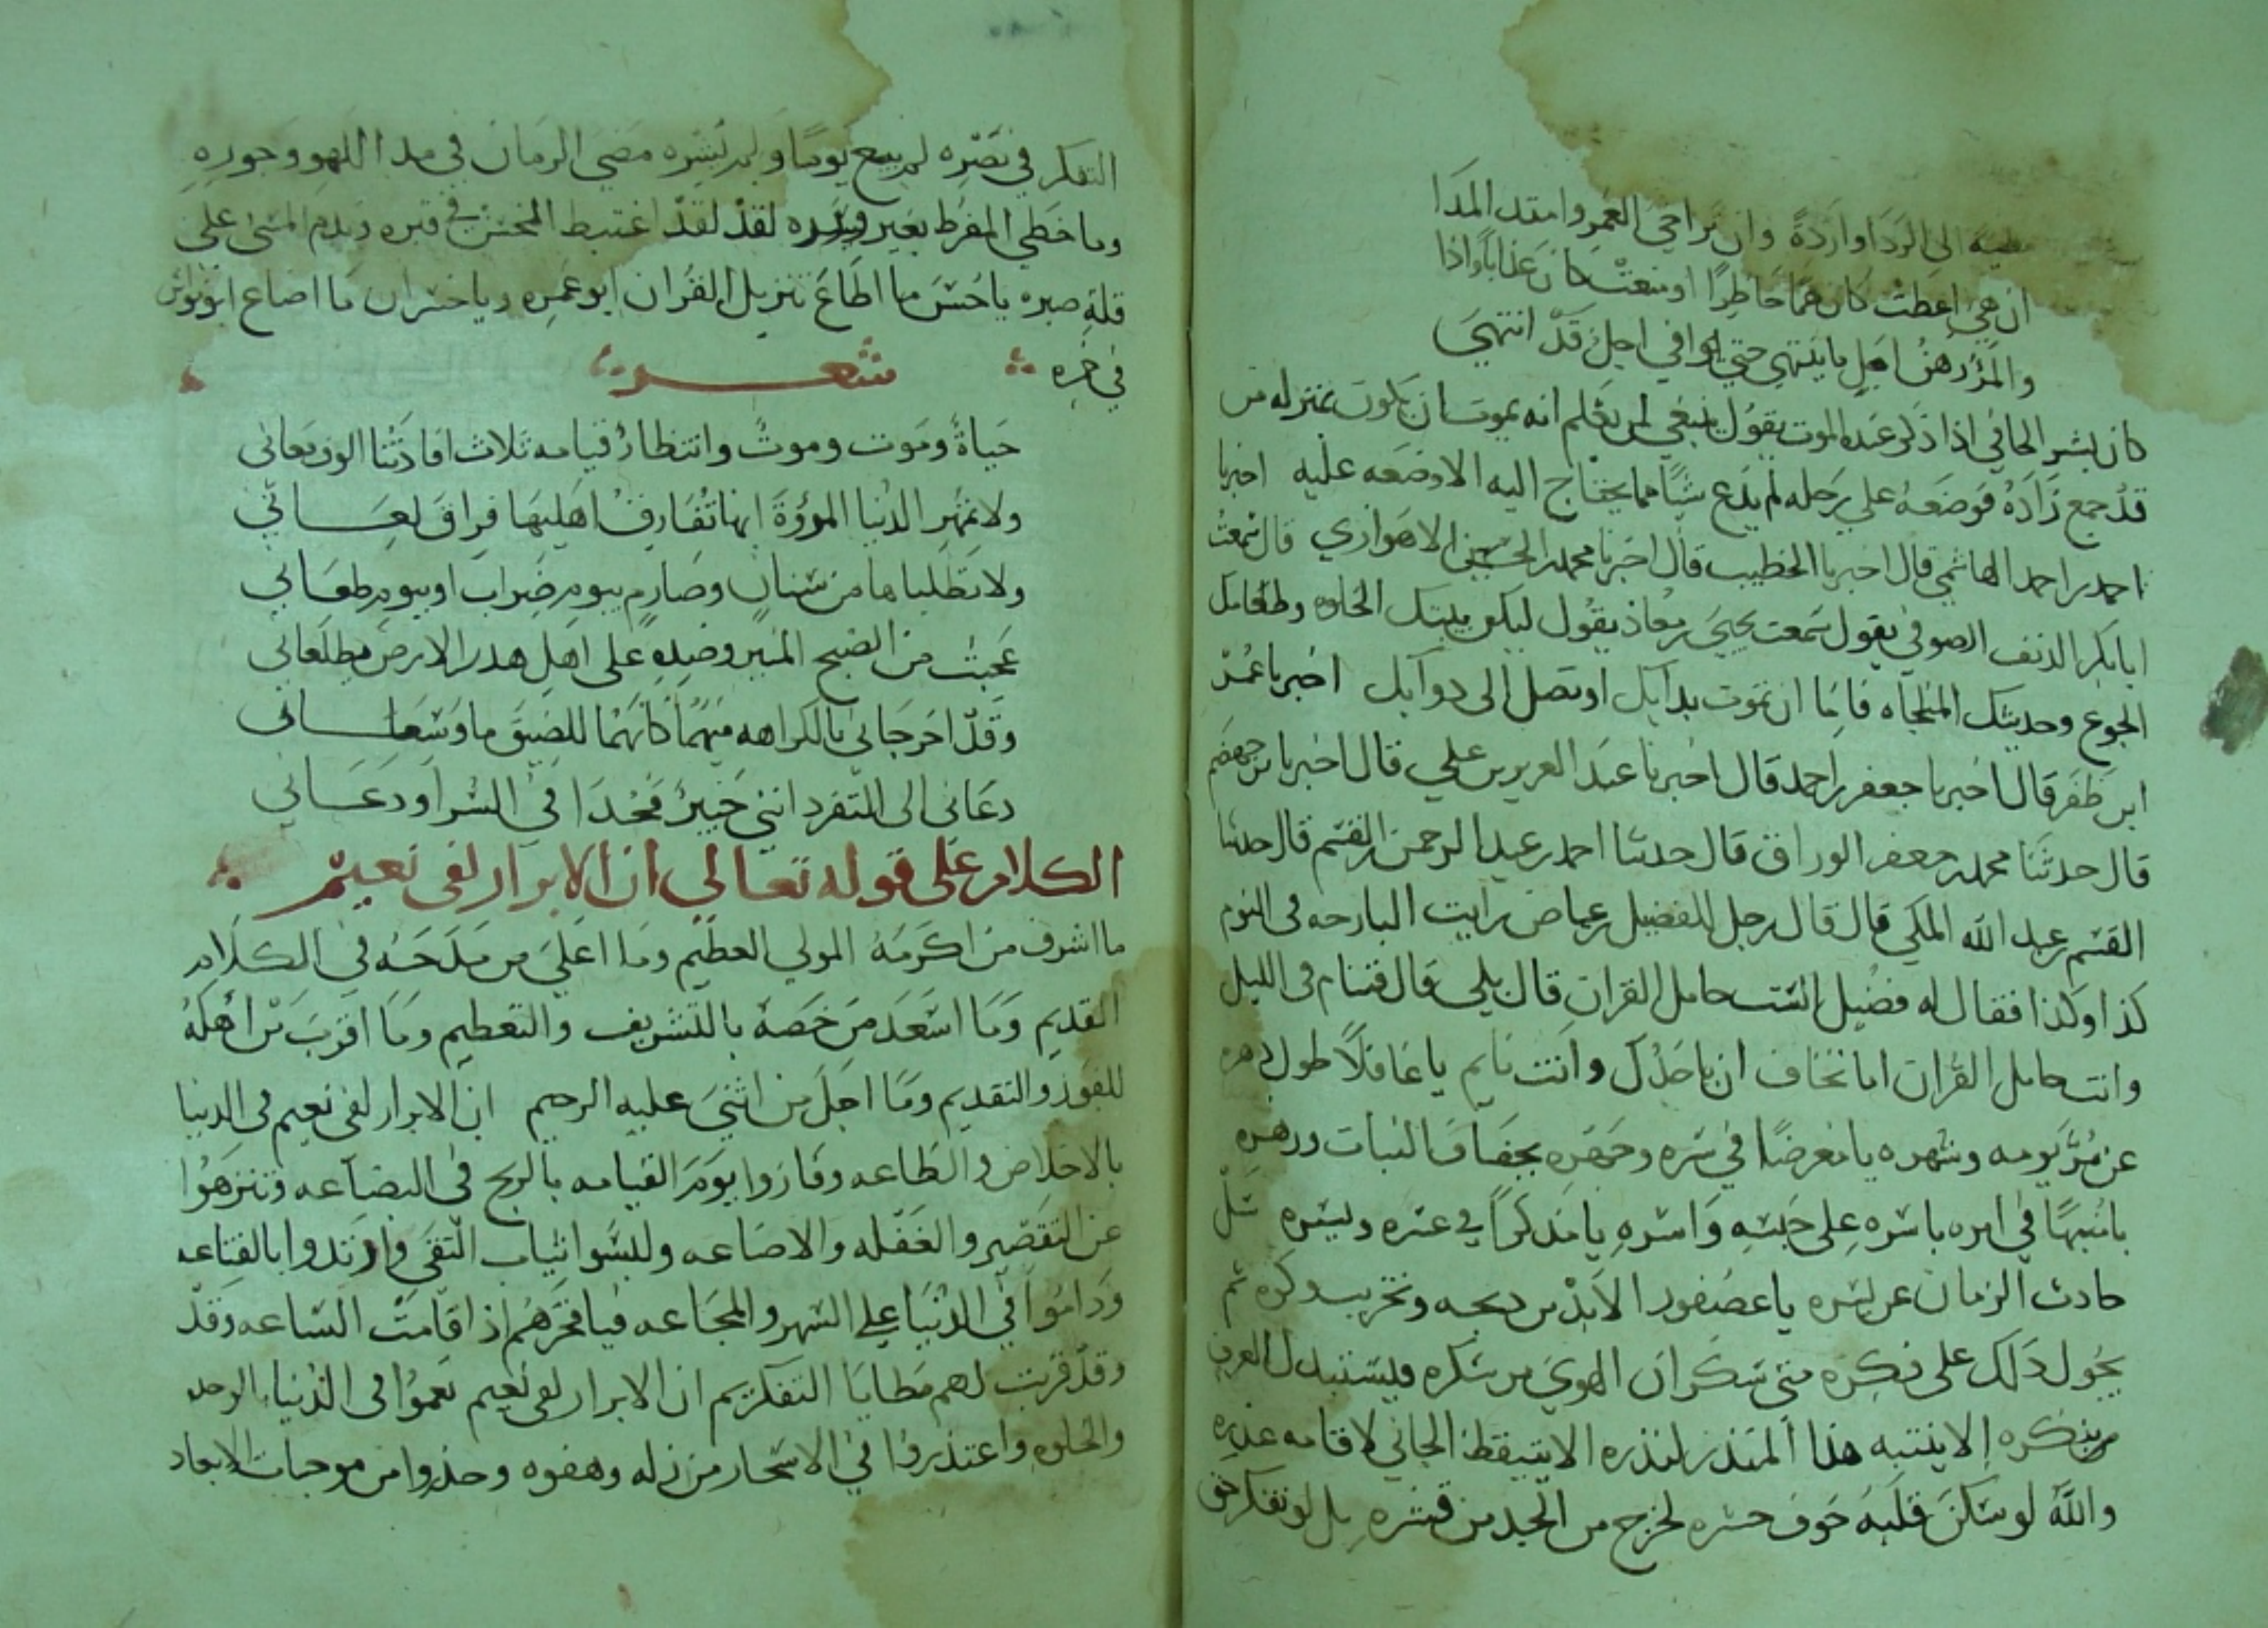 الى الردا واردة وان تراخى العمر وامتد المدا
ان هي اعطت كان همًا حاطرًا او منعت كان عذابًا واذا
والمرؤ رهن اجل ما ينتهي حتى يوافي اجل قد انتهى
كان بشر الحافي اذا ذكر عنده الموت يقول ينبغي لمن يعلم انه يموت ان يكون بمنزله من
قد جمع زاده فوضعه على رحله لم يدع شيًا مما يحتاج اليه الا وضعه عليه اخبرنا
احمد بن احمد الهاشمي قال اخبرنا الخطيب قال اخبرنا محمد بن الحسين الاهوازي قال سمعت
ابا بكر الدنف الصوفي يقول سمعت يحيى بن معاذ يقول ليكن بيتك الخلوه وطعامك
الجوع وحديثك المناجاه فاما ان تموت بدايك او تصل الى دوايك اخبرنا عمر
ابن ظفر قال اخبرنا جعفر بن احمد قال اخبرنا عبد العزيز بن علي قال اخبرنا بن جهضم
قال حدثنا محمد بن جعفر الوراق قال حدثنا احمد بن عبد الرحمن بن القسم قال حدثنا
القسم بن عبد الله الملكي قال قال رجل للفضيل بن عياض رايت البارحه في النوم
كذا وكذا فقال له فضيل الست حامل القران قال بلى قال فتنام في الليل
وانت حامل القران اما تخاف ان ياخذك وانت نايم يا غافلًا طول دهره
عن مر يومه وشهره يا معرضًا في سره وجهره بجفاف النبات وزهره
يا منبهًا في امره باسره على حبسه واسره يا مذكرًا في عسره ويسره سل
حادث الزمان عن يسره يا عصفور الابد من ذبحه وتخريب وكره ثم
يحول ذلك على فكره متى سكران الهوى من سكره ويستبدل العرف
من نكره الا ينتبه هذا المنذر لنذره الا يتيقظ الجاني لاقامه عذره
والله لو سكن قلبه خوف حسره لخرج من الجلد من قشره بل لو تفكر حق
التفكر في نصره لم يبع يومًا ولم يشره مضى الزمان في مدا اللهو وجوره
وما حظي المفرط بغير وزره لقد لقد اغتبط المحسن في قبره وندم المسى على
قلة صبره يا حسن ما اطاع تنزيل القران ابو عمره ويا خسران ما اضاع ابو نواس
في خمره شعر
حياة وموت وموت وانتظار قيامه ثلاث افادتنا الوف معاني
ولا تمهر الدنيا المروة انها تفارق اهليها فراق لعاني
ولا تطلباها من سنان وصارم بيوم ضراب او بيوم طعاني
عجبت من الصبح المنير وضده على اهل هدر الارض يطلعاني
وقد اخرجاني بالكراهه منهما كانهما للضيق ما وسعاني
دعاني الى التفرد انني خبير فجدا في السرا ودعاني
الكلام على قوله تعالى ان الابرار لفى نعيم
ما اشرف من اكرمه المولى العظيم وما اعلى من مدحه في الكلام
القديم وما اسعد من خصه بالتشريف والتعظيم وما اقرب من اهله
للفوز والتقديم وما اجل من اثنى عليه الرحيم ان الابرار لفى نعيم في الدنيا
بالاخلاص والطاعه وفازوا يوم القيامه بالربح في البضاعه وتنزهوا
عن التقصير والغفله والاضاعه ولبسوا ثياب التقى وارتدوا بالقناعه
وداموا في الدنيا على السهر والمجاعه فيا فخرهم اذا قامت الساعه وقد
وقد قربت لهم مطايا التفكر ان الابرار لفى نعيم نعموا في الدنيا بالوحده
والخلوه واعتذروا في الاسحار من زله وهفوه وحذروا من موجبات الابعاد